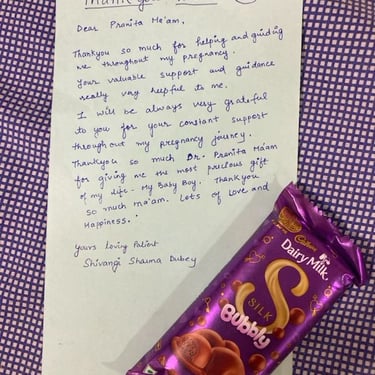 Thank you
Dear Pranita Me'am,
Thankyou so much for helping and guiding
me throughout my pregnancy.
Your valuable support and guidance
really very helpful to me.
I will be always very grateful
to you for your constant support
throughout my pregnancy journey.
Thankyou so much Dr. Pranita Ma'am
for giving me the most precious gift
of my life. My Baby Boy. Thankyou
so much ma'am. Lots of Love and
Happiness.
Yours Loving Patient
Shivangi Sharma Dubey
Cadbury
Dairy Milk
SILK
Bubbly